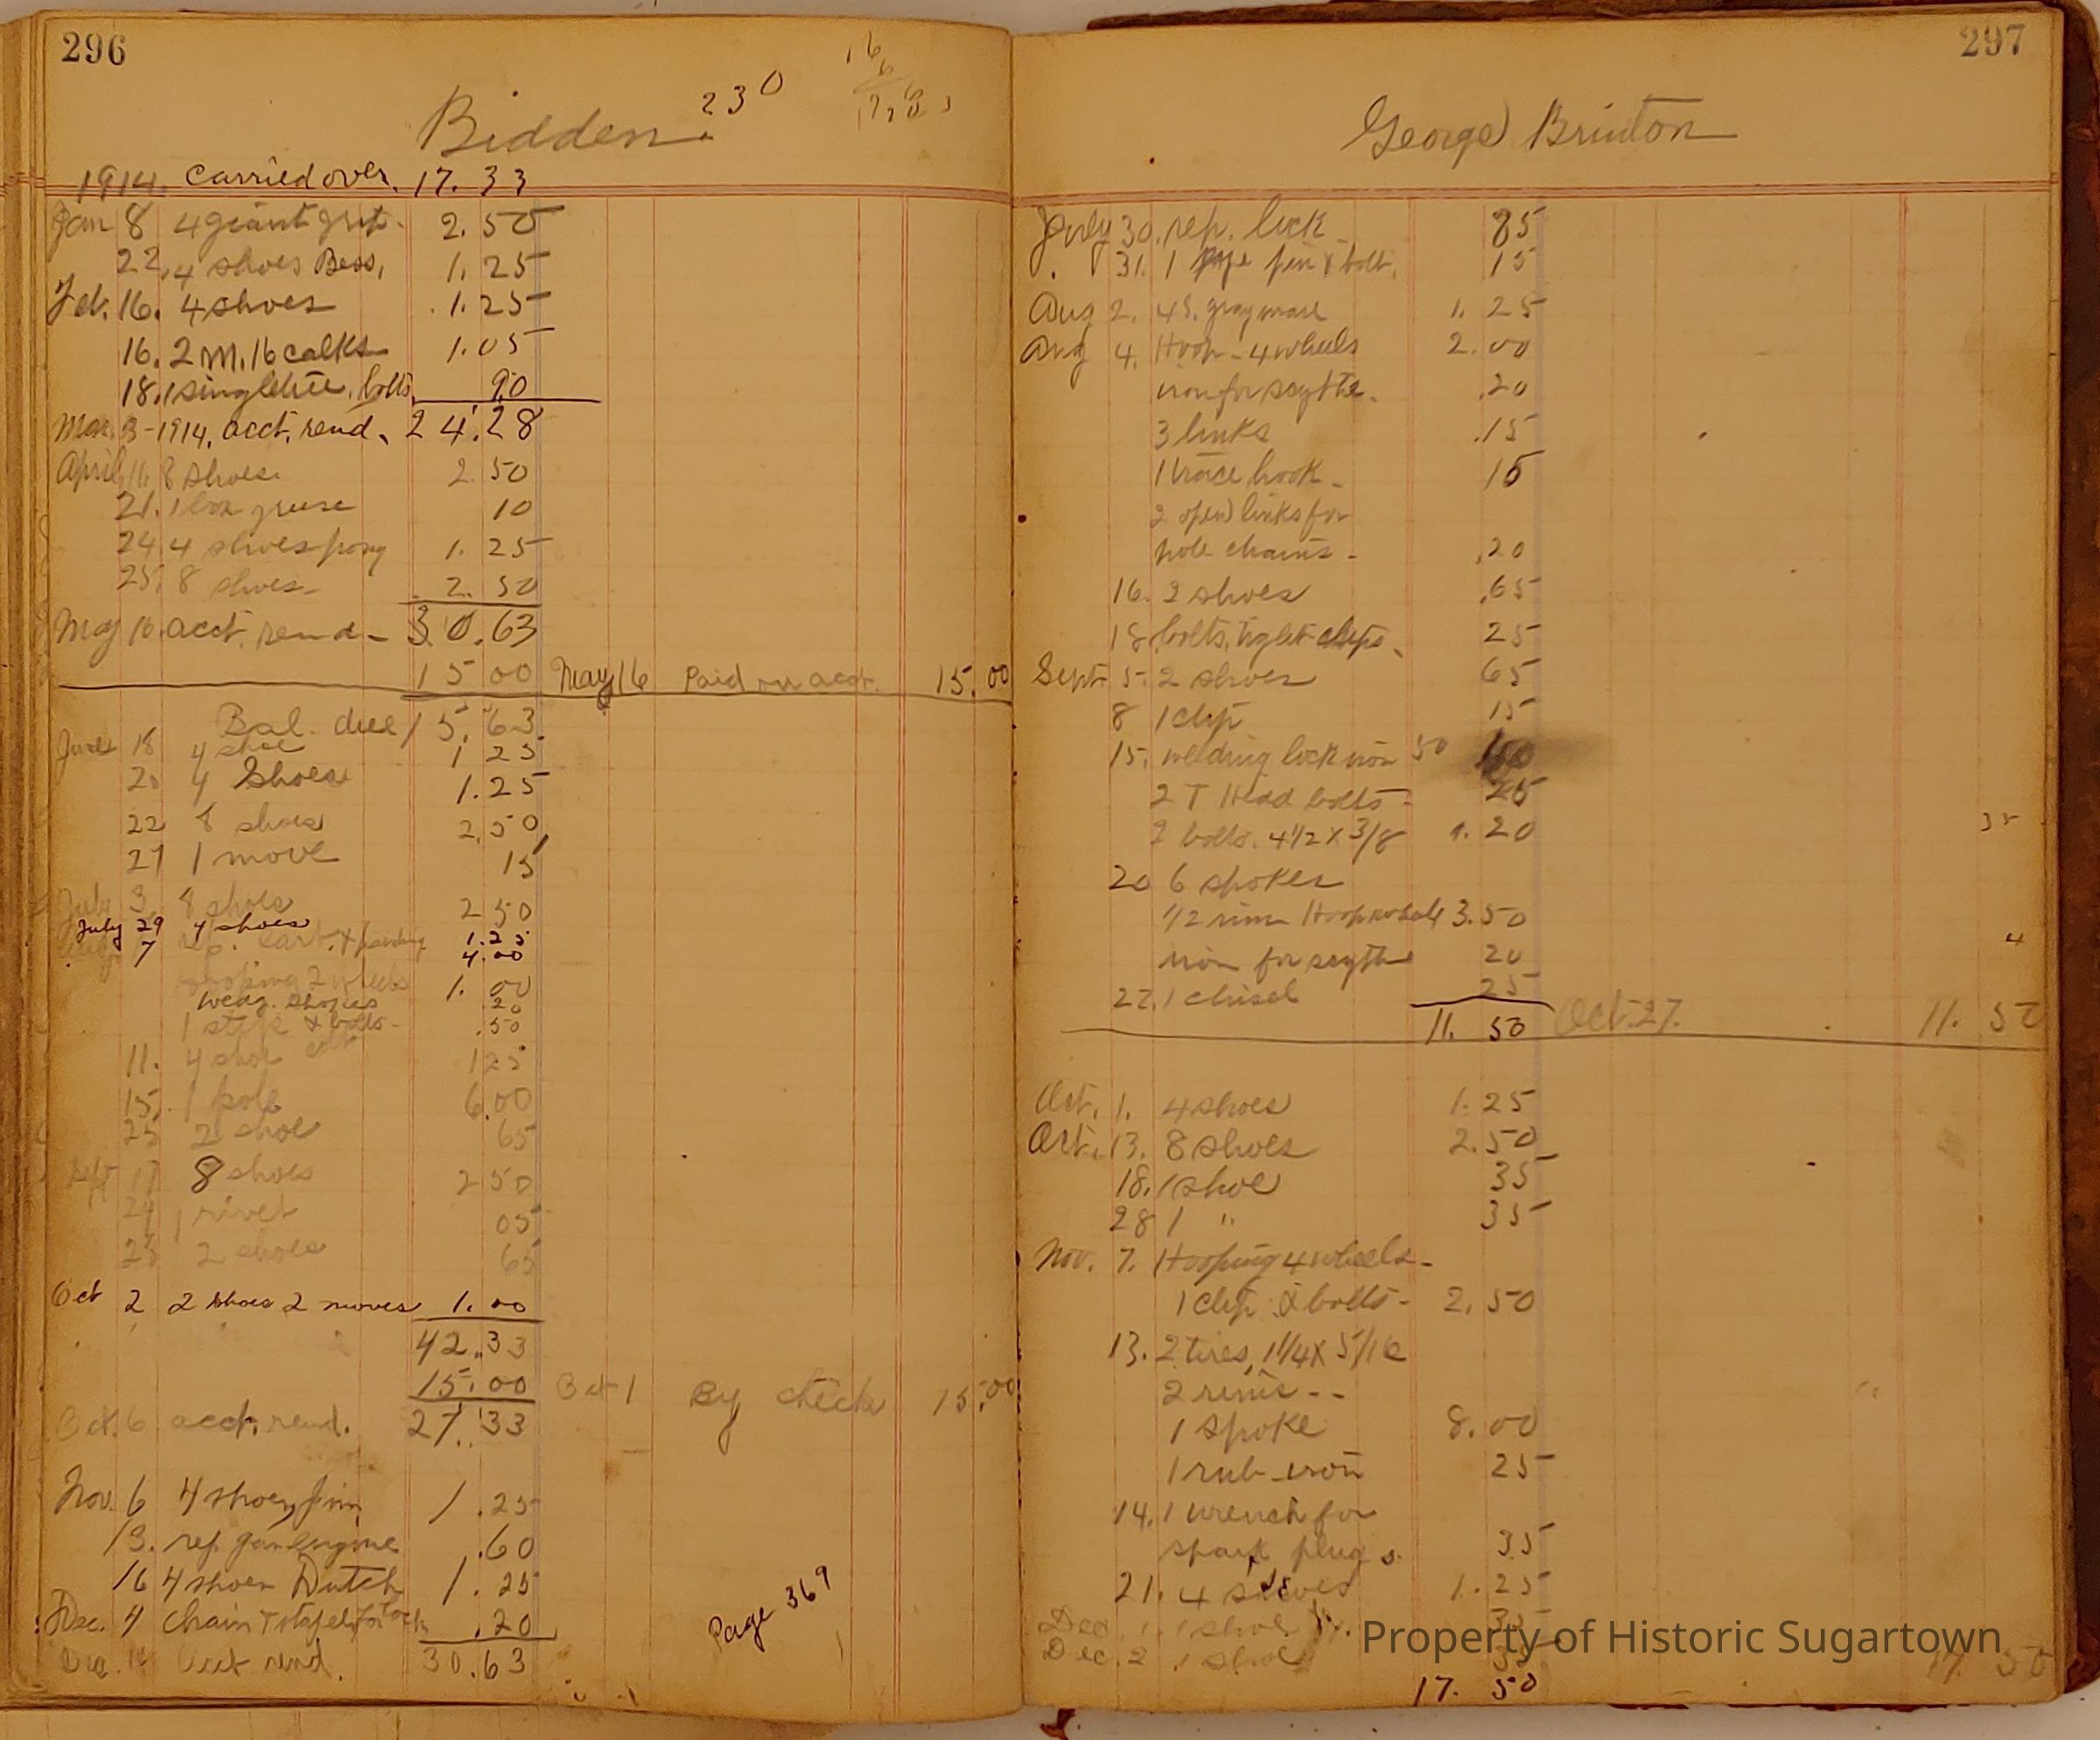 296
230
Bidden.
1914. Carried over. 17.33
Jan 8 4 giant grip - 2.50
22, 4 shoes Bess, 1.25
Feb. 16. 4 shoes 1.25
16. 2 M. 16 calks 1.05
18. 1 singletree, bolts, 90
Mar. 3 - 1914, acct. rend. 24.28
April 11. 8 shoes. 2.50
21. 1 box grease 10
24. 4 shoes pony 1.25
25, 8 shoes - 2.50
May 10. acct. rend - 30.63
15 00 May 16 Paid on acct. 15.00
Bal. due 15.63
June 18 4 shoe 1 25
20 4 Shoes 1.25
22 8 shoes 2.50
27 1 move 15
July 3 8 shoes 2 50
July 29 4 shoes 1.25
7 rep. cart 4.00
hooping 2 wheels 1.00
20
1 & bolts - .50
11. 4 shoe colt 125
15. 1 pole 6.00
25 2 shoe 65
Sept 17 8 shoes 2 50
24 1 rivet 05
28 2 shoes 65
Oct 2 2 shoes 2 moves 1.00
42.33
15.00 Oct 1 By check 15.00
Oct. 6 acct. rend. 27.33
Nov. 6 4 shoes, Jim 1.25
13. rep. gas engine .60
16 4 shoes Dutch 1.25
Dec. 4 chain & staples for .20
acct rend. 30.63
Page 369
297
George Brinton
July 30. rep. lock 85
31. 1 pin & bolt. 15
Aug 2. 4 S. gray mare 1.25
Aug 4. Hoop - 4 wheels 2.00
iron for scythe. .20
3 links .15
1 trace hook - 15
2 open links for
pole chains - .20
16. 2 shoes .65
18 bolts, tight clips, 25
Sept. 5. 2 shoes 65
8 1 clip 15
15. welding lock iron 50
2 T Head bolts - 25
2 bolts. 4 1/2 x 3/8 1.20
20 6 spokes
1/2 rim Hoop wheel 3.50
iron for scythe 20
22. 1 chisel 25
11. 50 Oct. 27. 11. 50
Oct. 1. 4 shoes 1.25
Oct. 13. 8 shoes 2.50
18. 1 shoe 35
28 1 " 35
Nov. 7. Hooping 4 wheels -
1 clip & bolts - 2.50
13. 2 tires, 1 1/4 x 5/16
2 rims - -
1 spoke 8.00
1 rub-iron 25
14. 1 wrench for
spark plugs. 35
21. 4 shoes 1.25
Dec 1. 1 shoe 35
Dec. 2 1 shoe
17. 50
17. 50
Property of Historic Sugartown